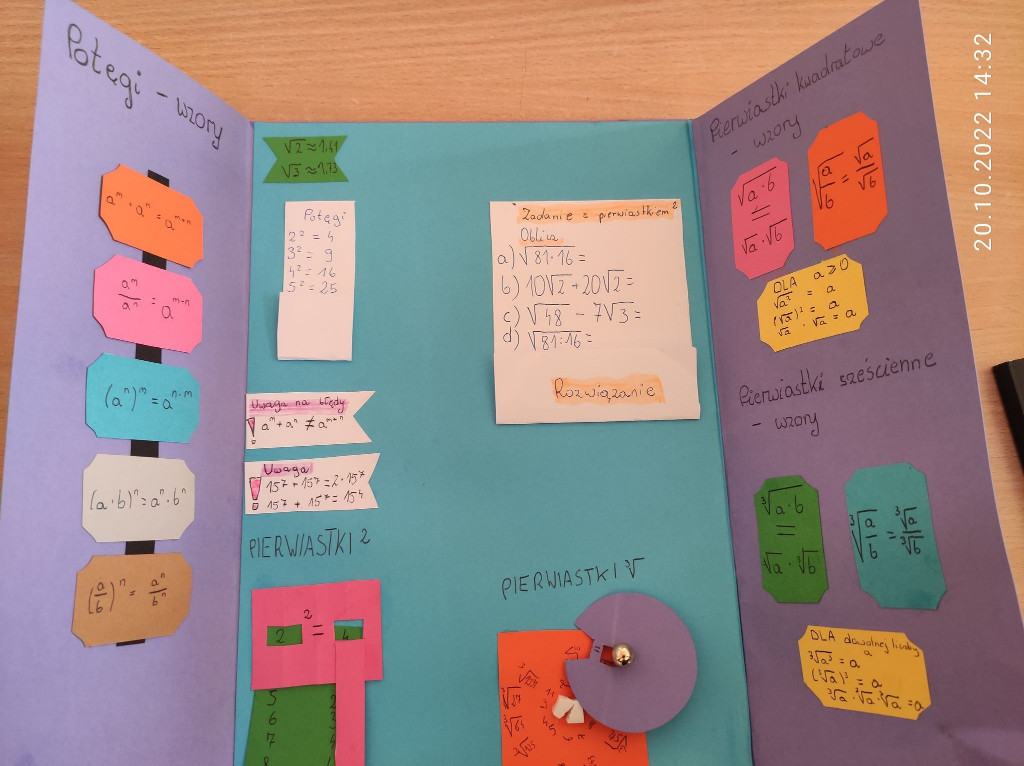 Potęgi - wzory
aᵐ · aⁿ = aᵐ⁺ⁿ
aᵐ/aⁿ = aᵐ⁻ⁿ
(aⁿ)ᵐ = aⁿ·ᵐ
(a·b)ⁿ = aⁿ·bⁿ
(a/b)ⁿ = aⁿ/bⁿ
√2 ≈ 1,41
√3 ≈ 1,73
Potęgi
2² = 4
3² = 9
4² = 16
5² = 25
Uwaga na błędy
! aᵐ + aⁿ ≠ aᵐ⁺ⁿ
Uwaga
! 15⁷ + 15⁷ = 2·15⁷
PIERWIASTKI ²
2 ² = 4
5 2
6 3
7 4
Zadanie z pierwiastkiem ²
Oblicz
a) √81·16 =
b) 10√2 + 20√2 =
c) √48 - 7√3 =
d) √81:16 =
Rozwiązanie
PIERWIASTKI √
=
³√27
³√64
Pierwiastki kwadratowe
- wzory
√a·b
=
√a·√b
√a/b = √a/√b
DLA a ≥ 0
√a² = a
(√a)² = a
√a · √a = a
Pierwiastki sześcienne
- wzory
³√a·b
=
³√a · ³√b
³√a/b = ³√a/³√b
DLA dowolnej liczby
a
³√a³ = a
(³√a)³ = a
³√a · ³√a · ³√a = a
20.10.2022 14:32